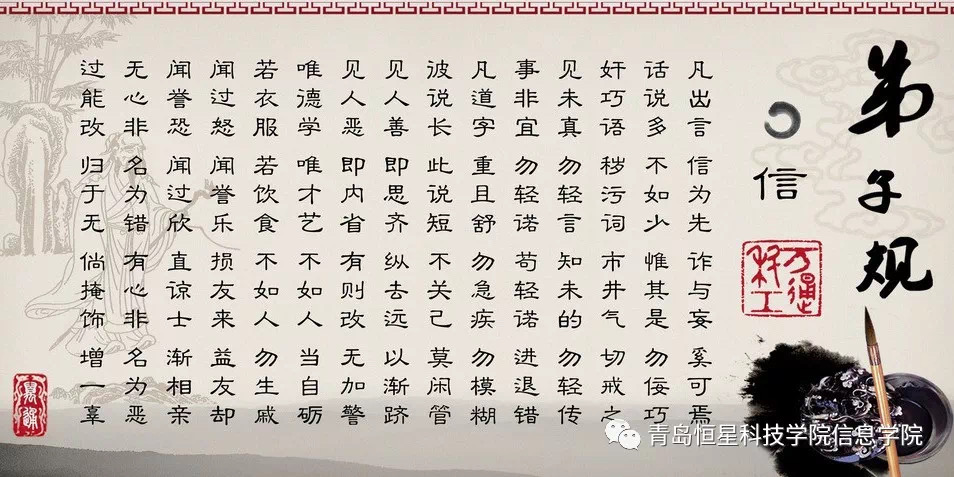 弟子规
信
凡出言信为先诈与妄奚可焉
话说多不如少惟其是勿佞巧
奸巧语秽污词市井气切戒之
见未真勿轻言知未的勿轻传
事非宜勿轻诺苟轻诺进退错
凡道字重且舒勿急疾勿模糊
彼说长此说短不关己莫闲管
见人善即思齐纵去远以渐跻
见人恶即内省有则改无加警
唯德学唯才艺不如人当自砺
若衣服若饮食不如人勿生戚
闻过怒闻誉乐损友来益友却
闻誉恐闻过欣直谅士渐相亲
无心非名为错有心非名为恶
过能改归于无倘掩饰增一辜
青岛恒星科技学院信息学院